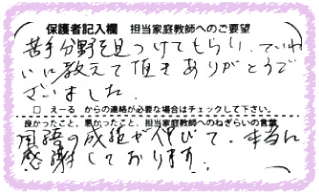 保護者記入欄 担当家庭教師へのご要望
苦手分野を見つけてもらい、ていね
いに教えて頂きありがとうご
ざいました。
□ えーる からの連絡が必要な場合はチェックして下さい。
良かったこと、悪かったこと、担当家庭教師へのねぎらいの言葉
国語の成績が伸びて、本当に
感謝しております。